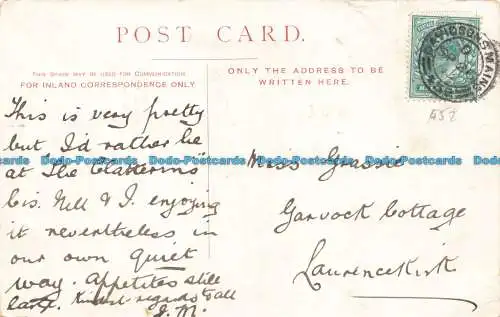 POST CARD.
THIS SPACE MAY BE USED FOR COMMUNICATION
FOR INLAND CORRESPONDENCE ONLY
ONLY THE ADDRESS TO BE
WRITTEN HERE.
DAVIDSONS MAINS
A52
This is very pretty
but I'd rather be
at "The Clatterins"
Cis. Nell & I. enjoying
it nevertheless in
our own quiet
way. Appetites still
large. Kindest regards to all
J. M.
Miss Grassie
Garvock Cottage
Laurencekirk
Dodo-Postcards Dodo-Postcards Dodo-Postcards Dodo-Postcards Dodo-Postcards